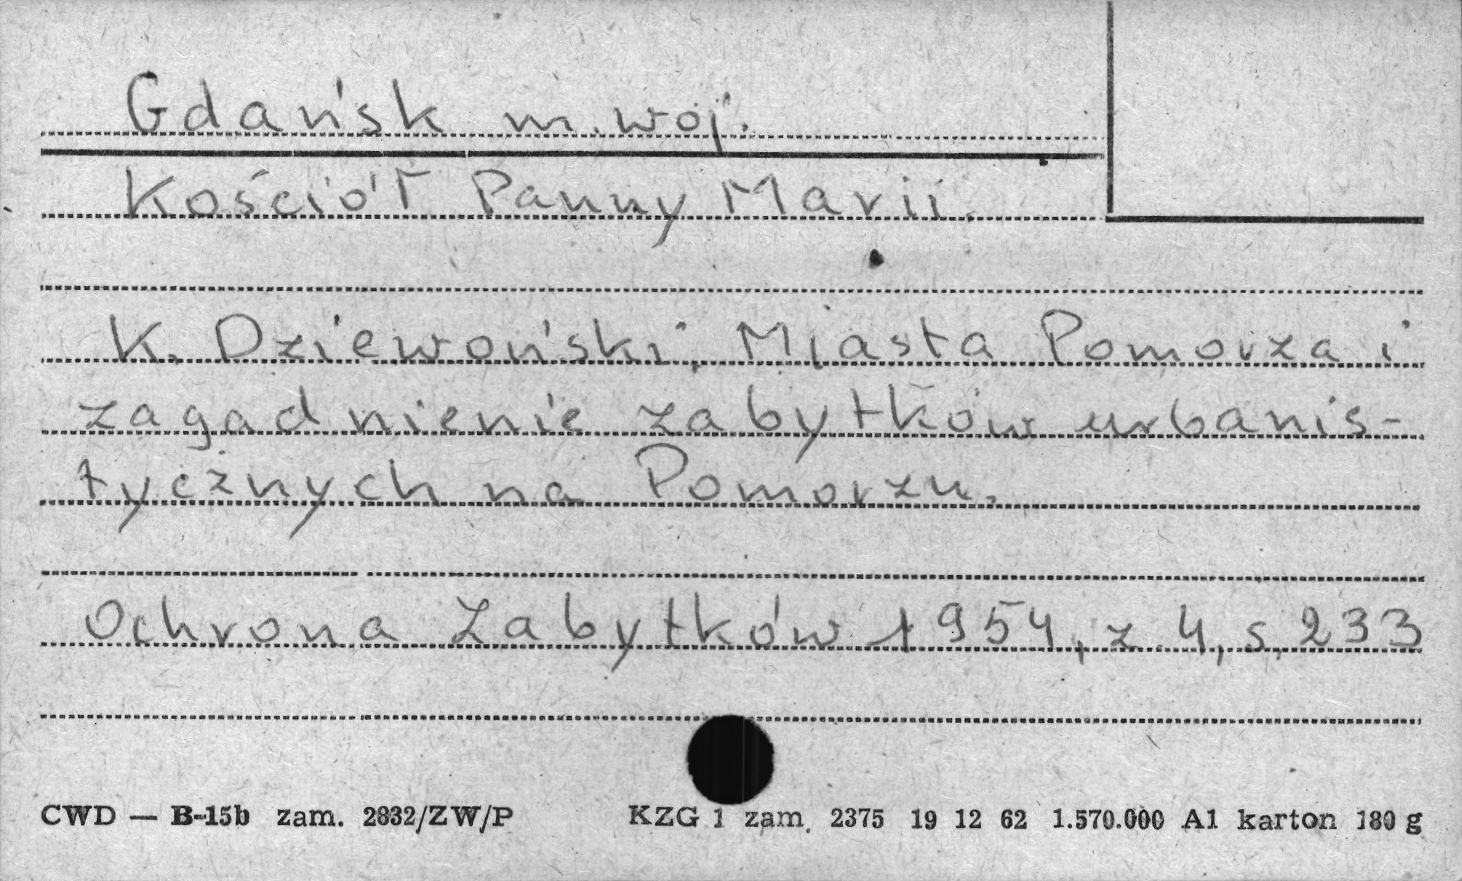 Gdańsk m. woj.
Kościół Panny Marii.
K. Dziewoński, Miasta Pomorza i
zagadnienie zabytków urbanis-
tycznych na Pomorzu.
Ochrona Zabytków 1954, z. 4, s. 233
CWD — B-15b zam. 2832/ZW/P KZG 1 zam. 2375 19 12 62 1.570.000 A1 karton 180 g